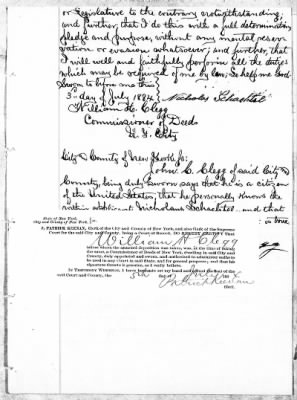 or Legislature to the contrary notwithstanding,
and further, that I do this with a full determination,
pledge and purpose, without any mental reser-
vation or evasion whatsoever; and further, that
I will well and faithfully perform all the duties
which may be required of me by law, so help me God.
Sworn to before me this
3 day of July 1884 Nicholas Schachtel
William H. Clegg
Commissioner of Deeds
N.Y. City
City & County of New York ss:
John C. Clegg of said City &
County, being duly sworn says that he is a citizen
of the United States, that he personally knows the
with applicant Nicholaus Schachtel and that
State of New York,
City and County of New York, ss.
I, PATRICK KEENAN, Clerk of the City and County of New York, and also Clerk of the Supreme
Court for the said City and County, being a Court of Record, DO HEREBY CERTIFY That
William H. Clegg
before whom the annexed deposition was taken, was, at the time of taking
the same, a Commissioner of Deeds, dwelling in said City and
County, duly appointed and sworn, and authorized to administer oaths to
be used in any Court in said State, and for general purposes; and that his
signature thereto is genuine, as I verily believe.
IN TESTIMONY WHEREOF, I have hereunto set my hand and affixed the seal of the
said Court and County, the 5th day of July 188
Patrick Keenan
Clerk.